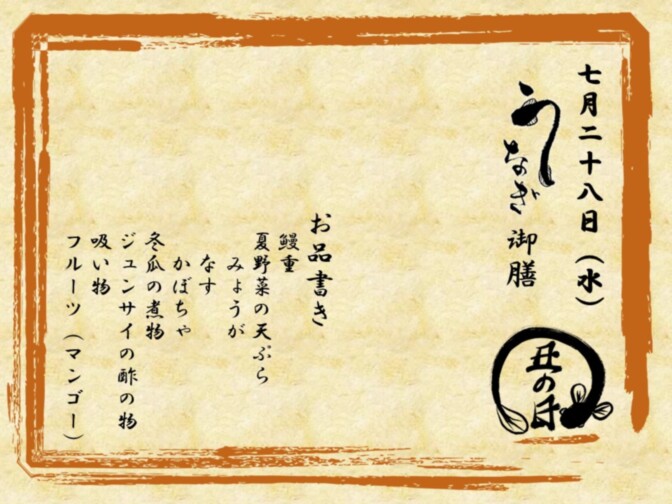 七月二十八日（水）
うなぎ御膳
丑の日
お品書き
鰻重
夏野菜の天ぷら
みょうが
なす
かぼちゃ
冬瓜の煮物
ジュンサイの酢の物
吸い物
フルーツ（マンゴー）